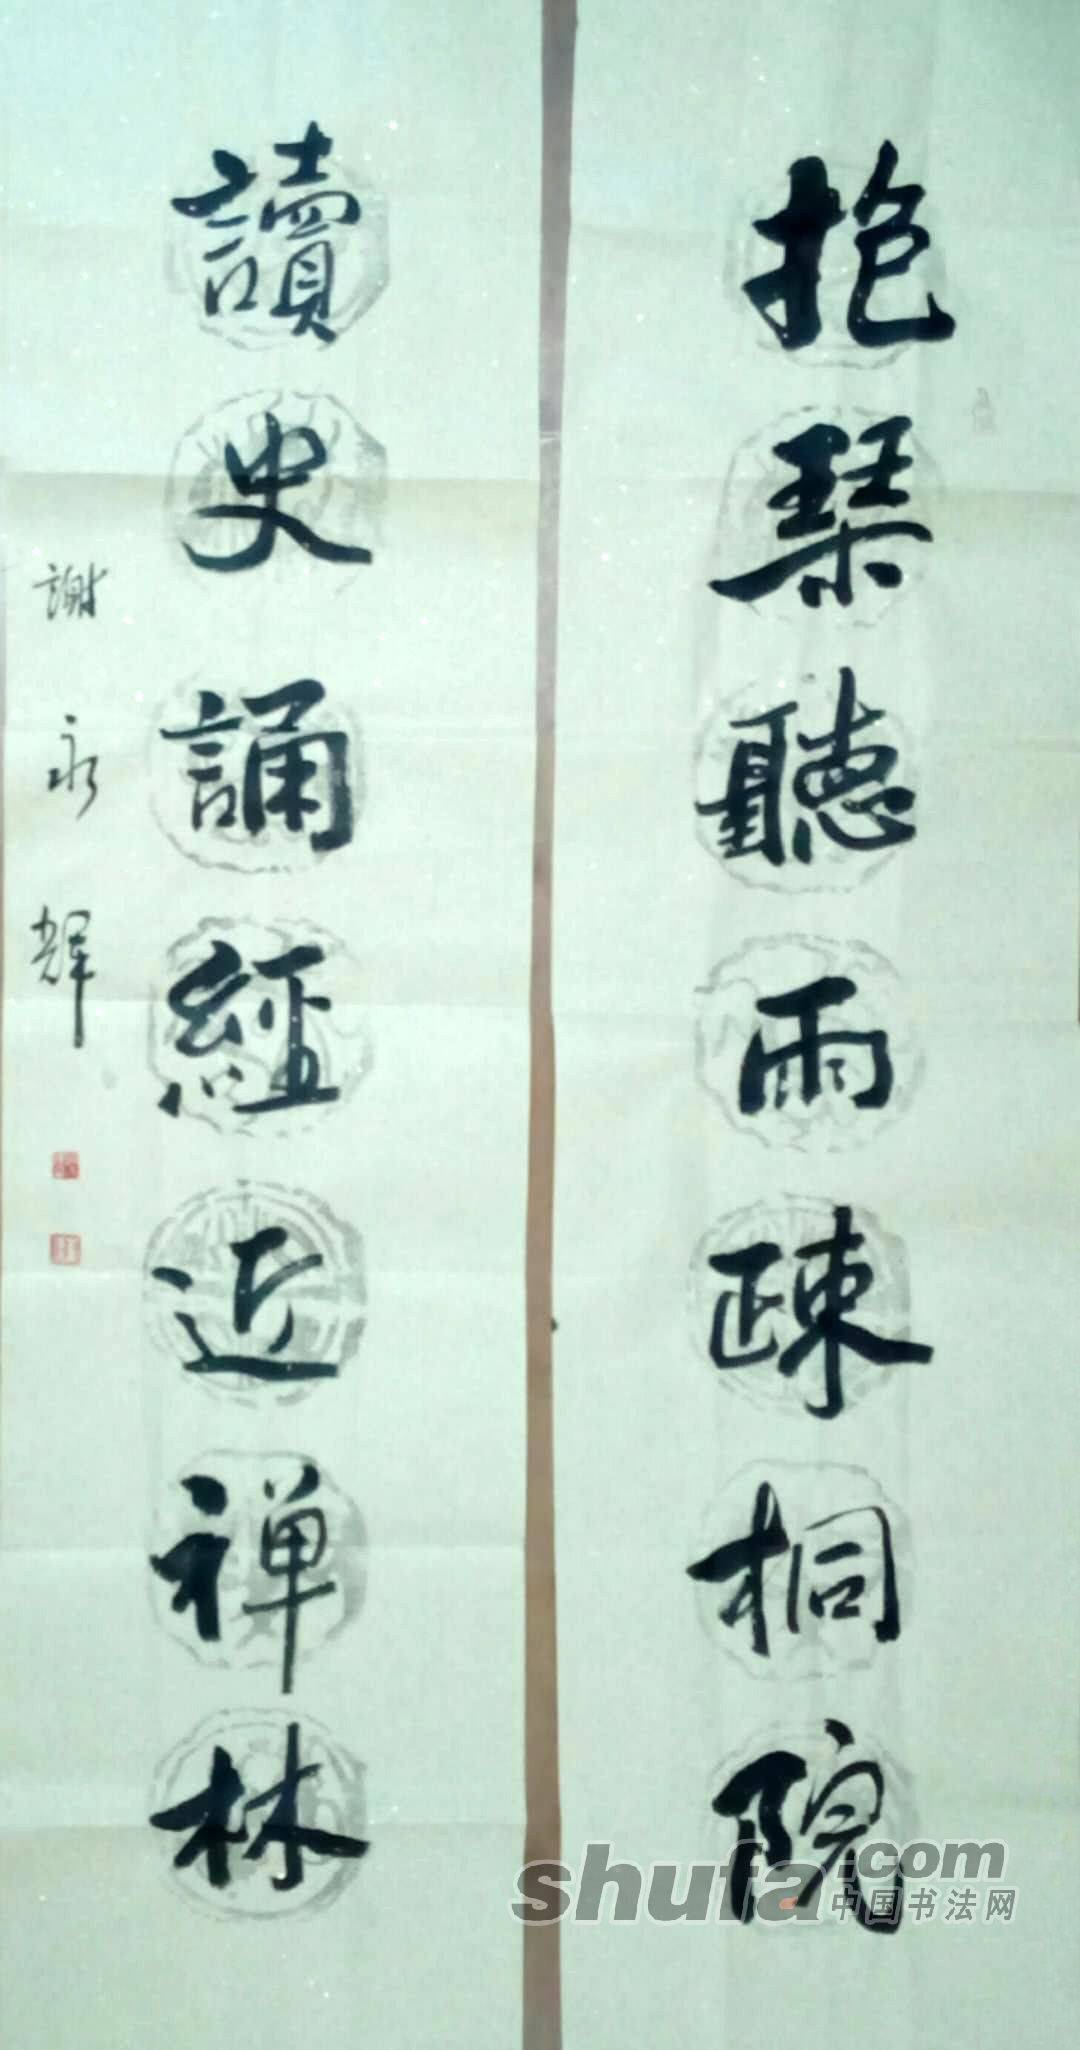 抱琴聽雨疎桐院
讀史誦經近禅林
謝永輝
shufa.com
中国书法网